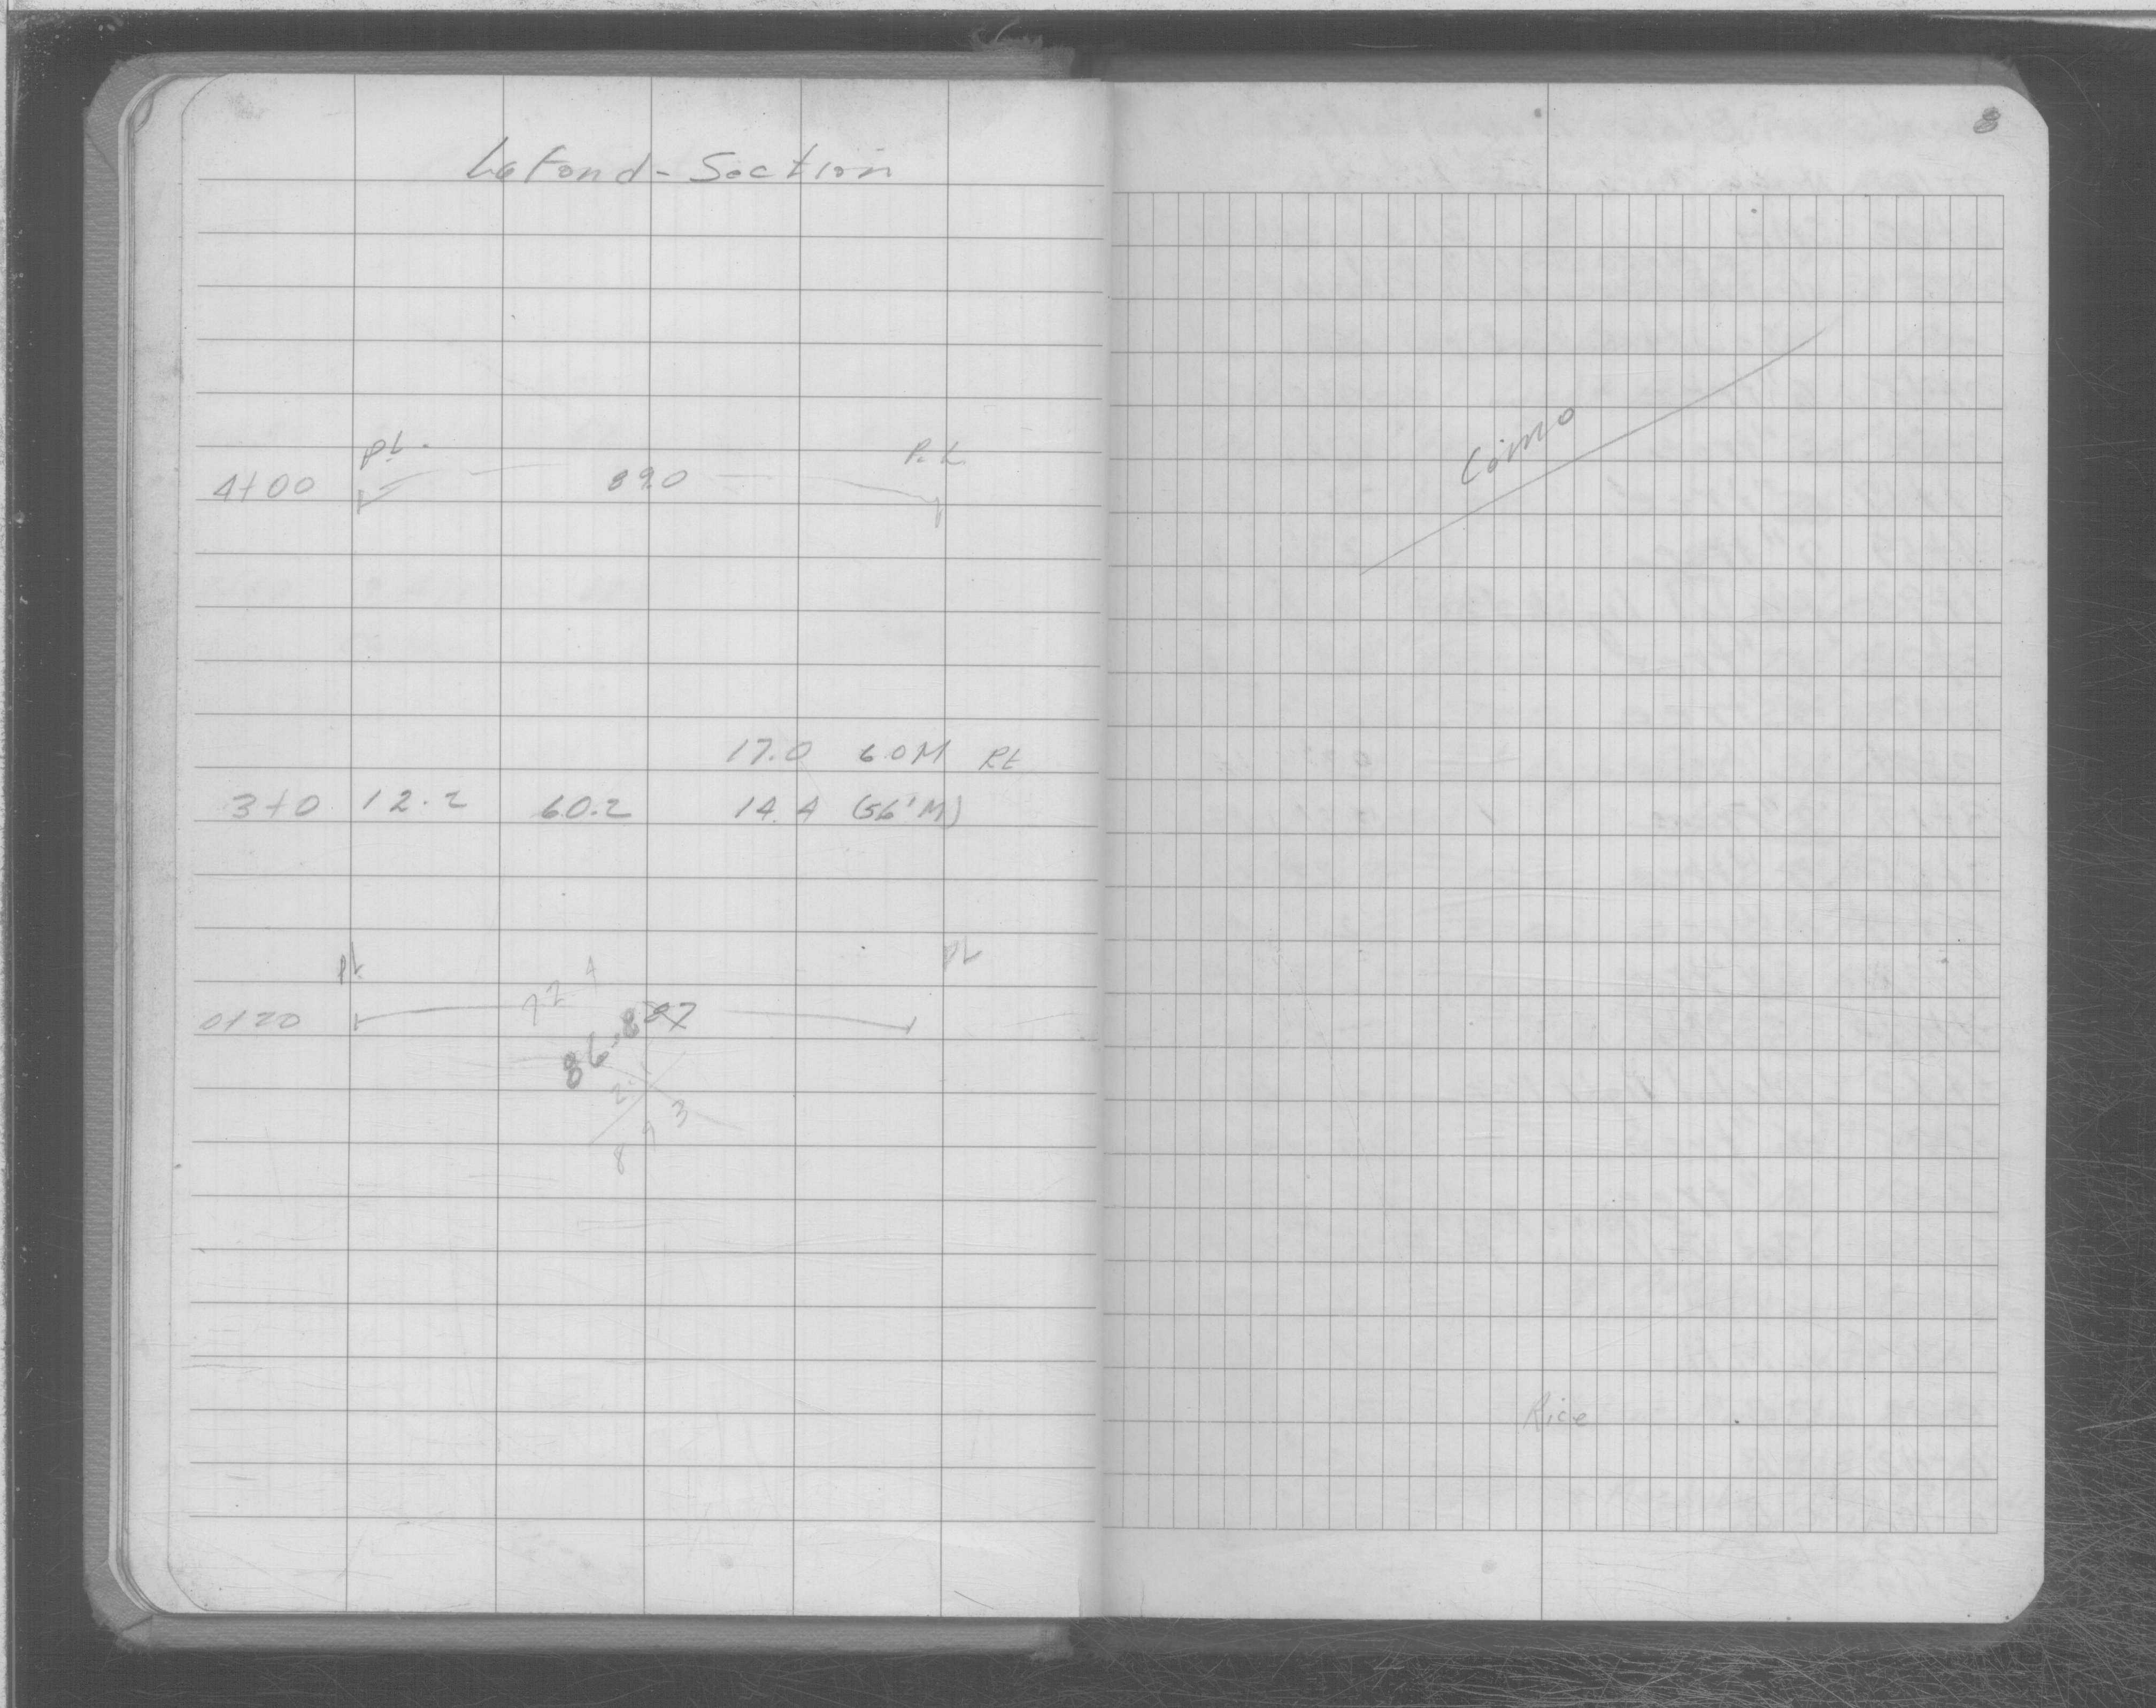 Lafond - Section
pt. P.L.
4+00 89.0
17.0 6.0M Rt
3+0 12.2 60.2 14.4 (56'M)
pt pt
0+20 87
86-8
2 3
8
8
Como
Rice